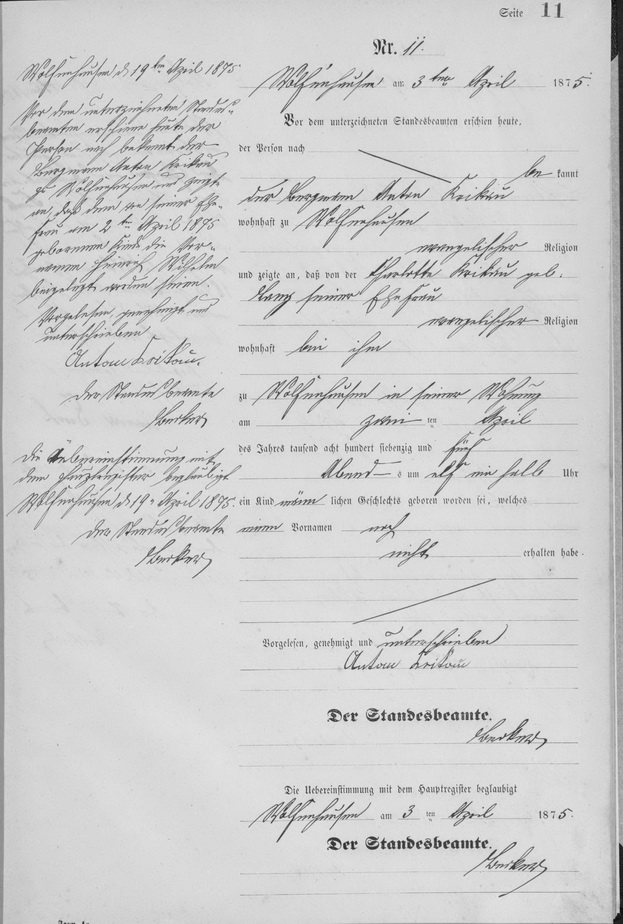 Seite 11
Nr. 11.
Wolfenhausen am 3ten April 1875.
Vor dem unterzeichneten Standesbeamten erschien heute,
der Person nach
be kannt
der Bergmann Anton Krikau
wohnhaft zu Wolfenhausen
evangelischer Religion
und zeigte an, daß von der Charlotte Krikau geb.
seiner Ehefrau
evangelischer Religion
wohnhaft bei ihm
zu Wolfenhausen in seiner Wohnung
am zwei ten April
des Jahres tausend acht hundert siebenzig und fünf
Abend s um elf ein halb Uhr
ein Kind männ lichen Geschlechts geboren worden sei, welches
einen Vornamen noch
nicht erhalten habe.
Vorgelesen, genehmigt und unterschrieben
Anton Krikau
Der Standesbeamte.
Becker
Die Uebereinstimmung mit dem Hauptregister beglaubigt
Wolfenhausen am 3 ten April 1875.
Der Standesbeamte.
Becker
Wolfenhausen d 19ten April 1875
Vor dem unterzeichneten Standes-
beamten erschien heute der
Person nach bekannt der
Bergmann Anton Krikau
zu Wolfenhausen und zeigt
an, daß dem von seiner Ehe-
frau am 2ten April 1875
geborenen Kinde die Vor-
namen Heinrich Wilhelm
beigelegt worden seien.
Vorgelesen, genehmigt und
unterschrieben
Anton Krikau.
Der Standesbeamte
Becker
Die Uebereinstimmung mit
dem Hauptregister beglaubigt
Wolfenhausen d 19. April 1875.
Der Standesbeamte
Becker